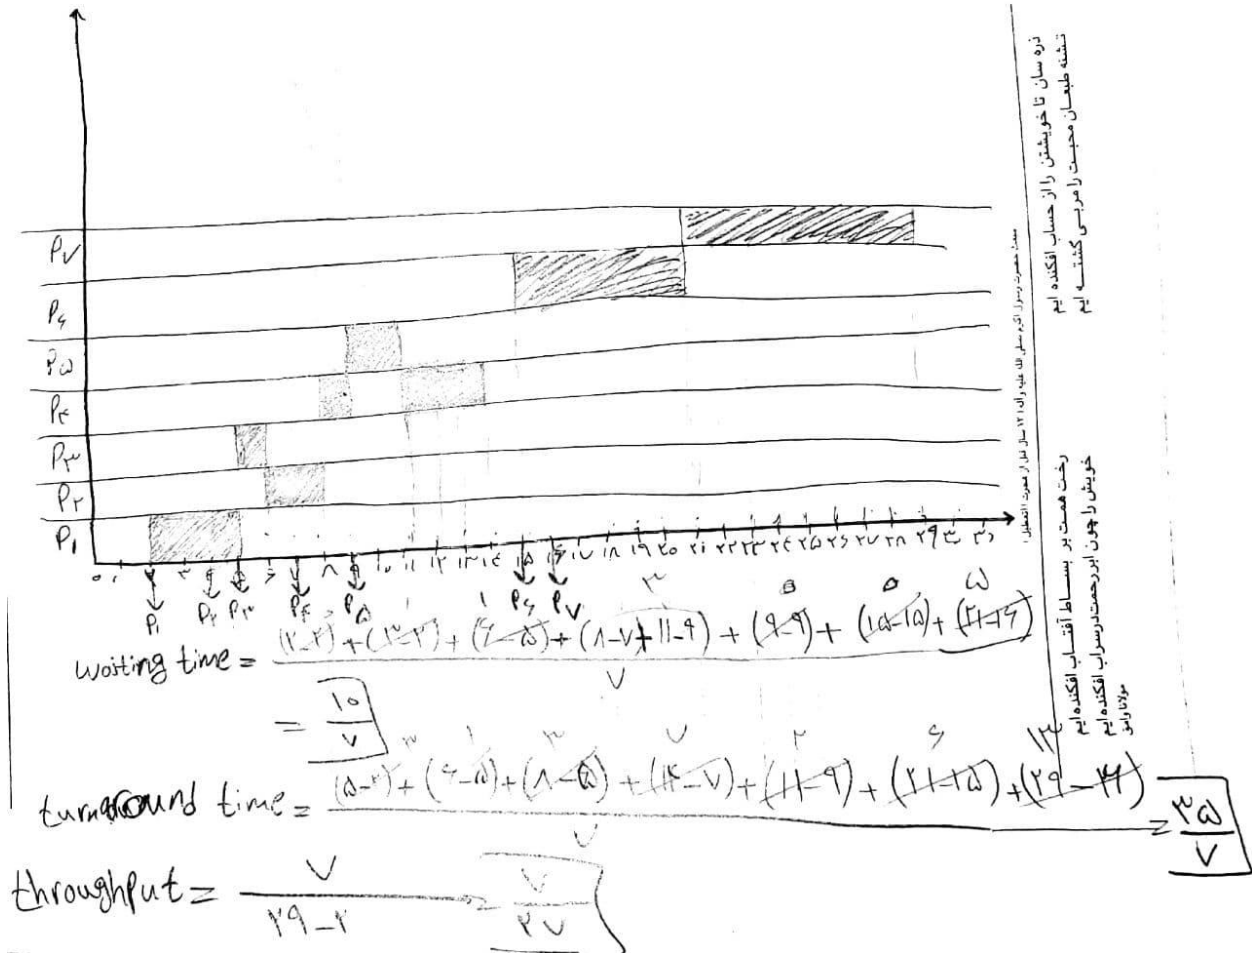 P۷
P۶
P۵
P۴
P۳
P۲
P۱
۰ ۱ ۲ ۳ ۴ ۵ ۶ ۷ ۸ ۹ ۱۰ ۱۱ ۱۲ ۱۳ ۱۴ ۱۵ ۱۶ ۱۷ ۱۸ ۱۹ ۲۰ ۲۱ ۲۲ ۲۳ ۲۴ ۲۵ ۲۶ ۲۷ ۲۸ ۲۹ ۳۰ ۳۱
P۱ P۲ P۳ P۴ P۵ P۶ P۷
۱ ۱ ۳ ۰ ۰ ۵
waiting time = (۲-۲) + (۳-۲) + (۶-۵) + (۸-۷)+(۱۱-۹) + (۹-۹) + (۱۵-۱۵) + (۲۱-۱۶)
۷
= ۱۰
۷
۳ ۱ ۳ ۷ ۲ ۶ ۱۳
turnaround time = (۵-۲) + (۶-۵) + (۸-۵) + (۱۴-۷) + (۱۱-۹) + (۲۱-۱۵) + (۲۹-۱۶) = ۳۵
۷ ۷
throughput = ۷ = ۷
۲۹-۲ ۲۷
ذره سان تا خویشتن را از حساب افکنده ایم
تشنه طبعان محبت را مربی گشته ایم
رخت همت بر بساط آفتاب افکنده ایم
خویش را چون ابر رحمت در سراب افکنده ایم